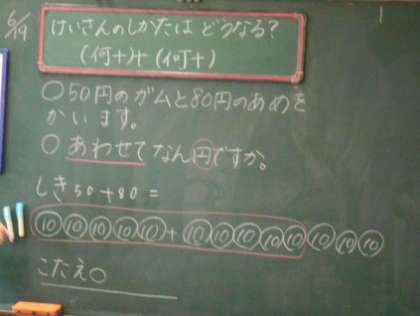 6/19
けいさんのしかたは どうなる?
(何+)+(何+)
○50円のガムと80円のあめを
かいます。
○ あわせて なん円ですか。
しき 50+80=
⑩⑩⑩⑩⑩+⑩⑩⑩⑩⑩⑩⑩⑩
こたえ○